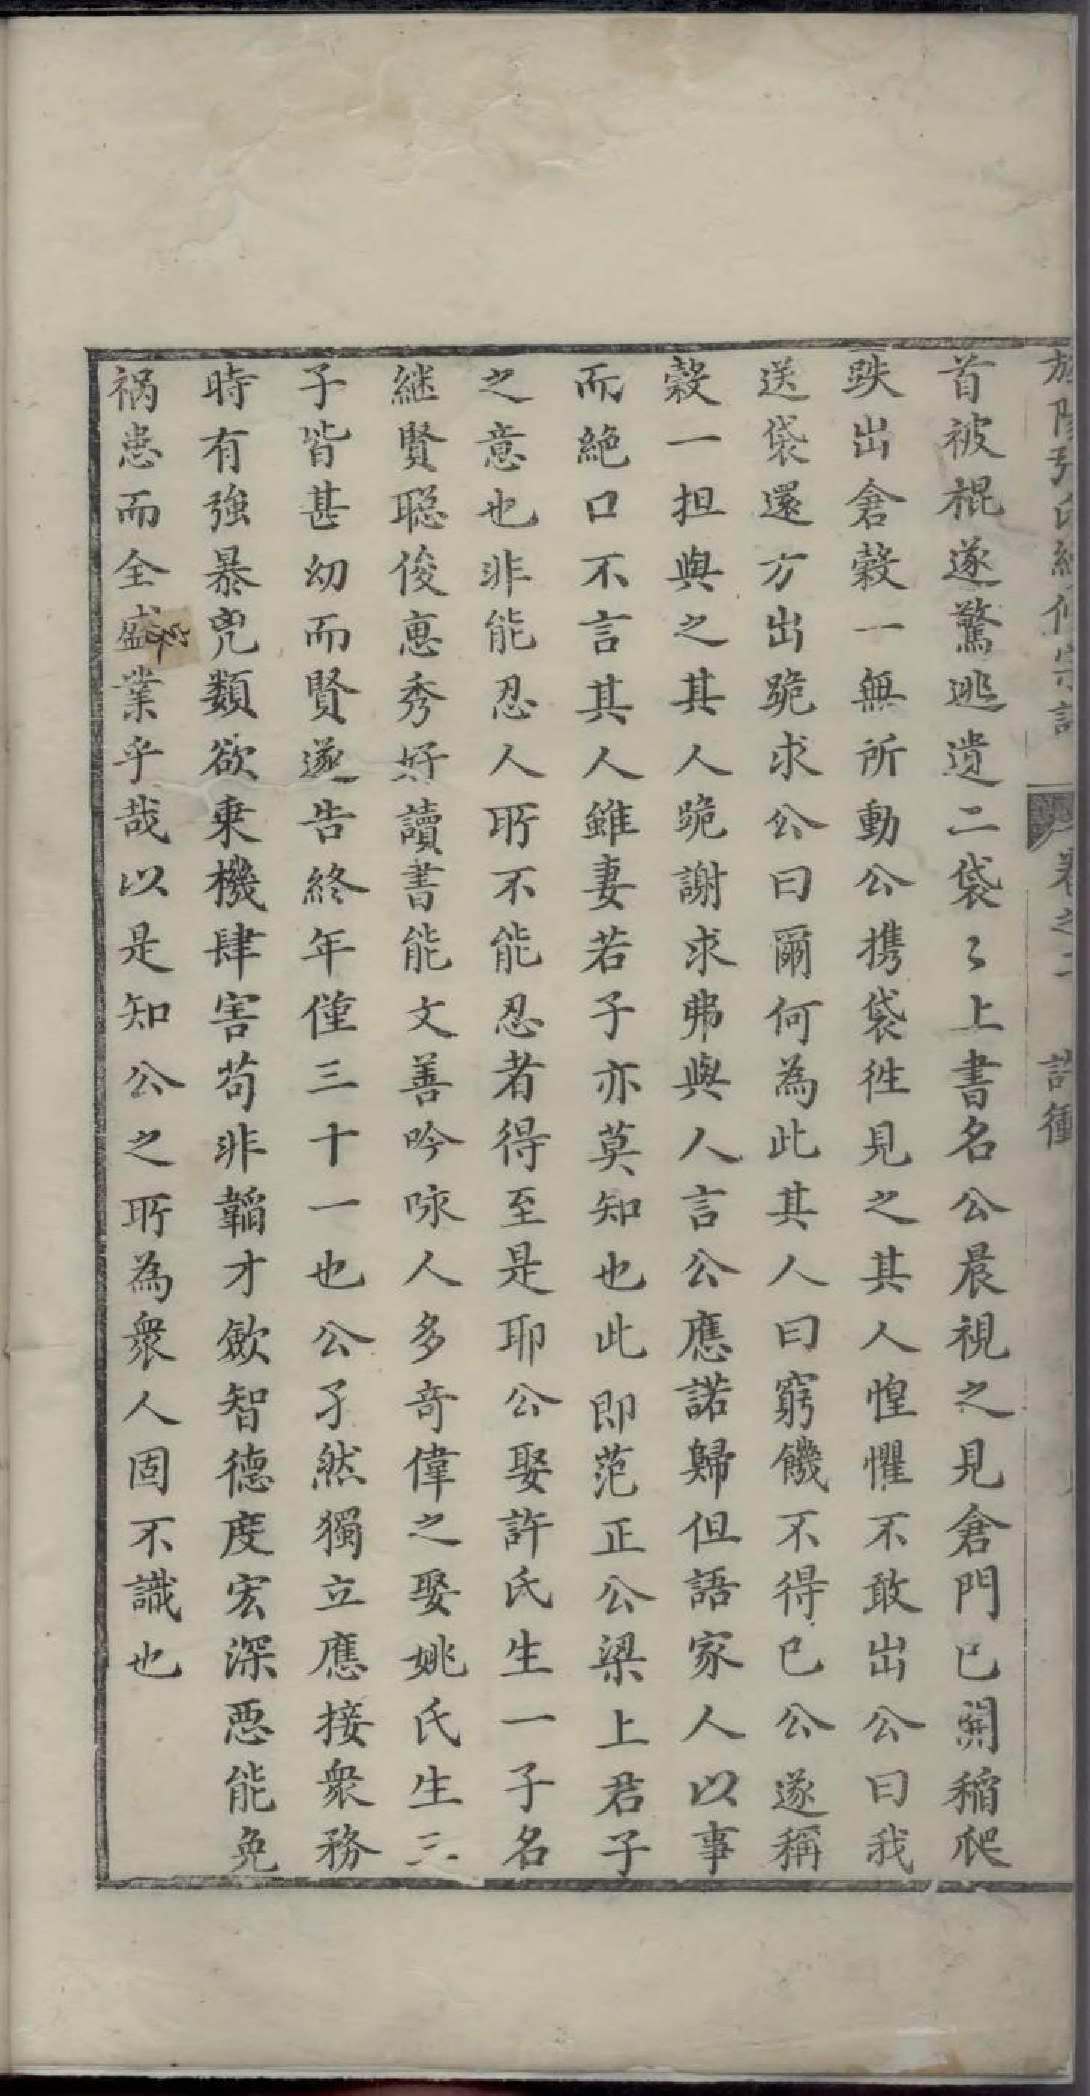 卷之二
首被棍遂驚逃遺二袋〻上書名公晨視之見倉門已開稻爬
跌出倉穀一無所動公携袋徃見之其人惶懼不敢出公曰我
送袋還方出跪求公曰爾何為此其人曰窮饑不得已公遂稱
穀一担與之其人跪謝求弗與人言公應諾歸但語家人以事
而絕口不言其人雖妻若子亦莫知也此即范正公梁上君子
之意也非能忍人所不能忍者得至是耶公娶許氏生一子名
継賢聪俊惠秀好讀書能文善吟咏人多竒偉之娶姚氏生三
子皆甚幼而賢遂告終年僅三十一也公孑然獨立應接衆務
時有強暴兇類欲乗機肆害苟非韜才歛智德度宏深惡能免
祸患而全盛業乎哉以是知公之所為衆人固不識也